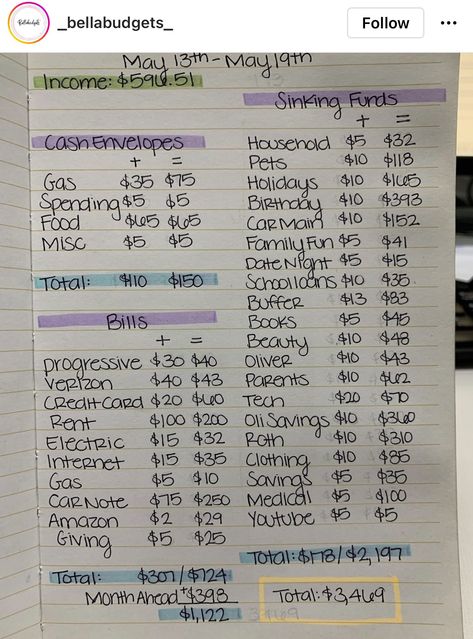 Bellabudgets
_bellabudgets_
Follow
May 13th - May 19th
Income: $596.51
Cash Envelopes
+ =
Gas $35 $75
Spending $5 $5
Food $65 $65
MISC $5 $5
Total: $110 $150
Bills
+ =
progressive $30 $40
Verizon $40 $43
Credit Card $20 $60
Rent $100 $200
Electric $15 $32
Internet $15 $35
Gas $5 $10
Car Note $75 $250
Amazon $2 $29
Giving $5 $25
Total: $307/$724
Month Ahead +$398
$1,122
Sinking Funds
+ =
Household $5 $32
Pets $10 $118
Holidays $10 $165
Birthday $10 $393
Car Main $10 $152
Family Fun $5 $41
Date Night $5 $15
School loans $10 $35
Buffer $13 $83
Books $5 $45
Beauty $10 $48
Oliver $10 $43
Parents $10 $62
Tech $20 $70
Oli Savings $10 $360
Roth $10 $310
Clothing $10 $85
Savings $5 $35
Medical $5 $100
Youtube $5 $5
Total: $178/$2,197
Total: $3,469
3469